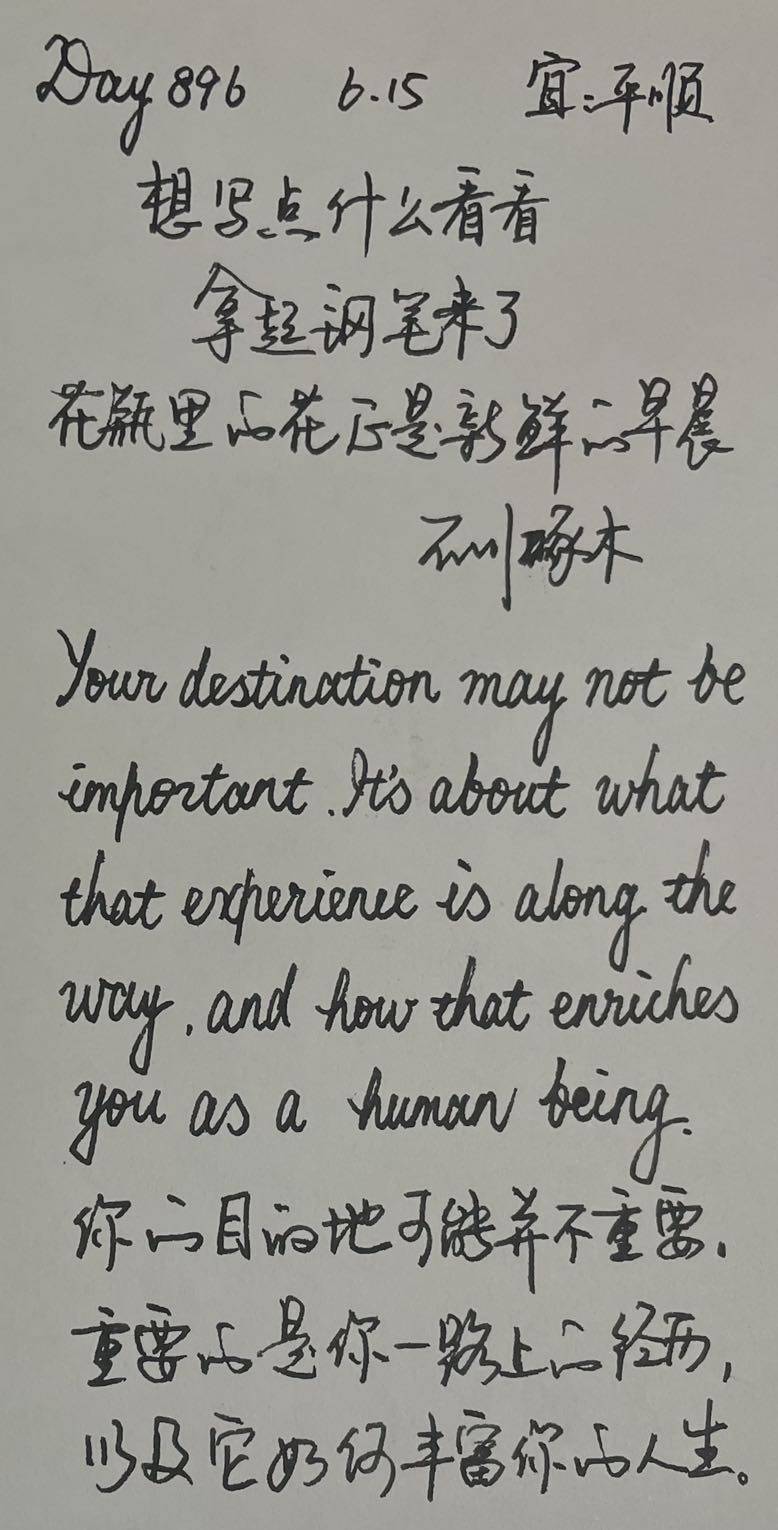 Day 896 6.15 宜:平顺
想写点什么看看
拿起钢笔来了
花瓶里的花正是新鲜的早晨
石川啄木
Your destination may not be
important. It's about what
that experience is along the
way, and how that enriches
you as a human being.
你的目的地可能并不重要,
重要的是你一路上的经历,
以及它如何丰富你的人生。